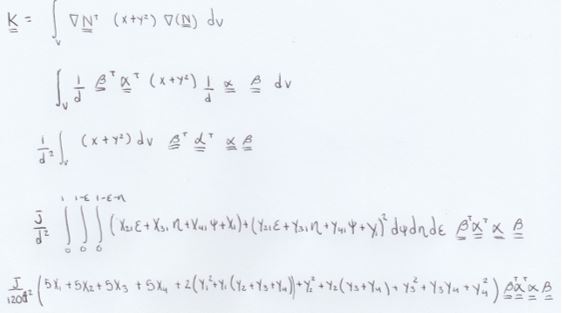 K = ∫_V ∇Nᵀ (x+y²) ∇(N) dv
∫_V 1/d βᵀ αᵀ (x+y²) 1/d α β dv
1/d² ∫_V (x+y²) dv βᵀ αᵀ α β
J/d² ∫₀¹ ∫₀^(1-ε) ∫₀^(1-ε-η) (x₂₁ε + x₃₁η + x₄₁ψ + x₁) + (y₂₁ε + y₃₁η + y₄₁ψ + y₁)² dψdηdε βᵀ αᵀ α β
J/120d² (5x₁ + 5x₂ + 5x₃ + 5x₄ + 2(y₁² + y₁(y₂+y₃+y₄)) + y₂² + y₂(y₃+y₄) + y₃² + y₃y₄ + y₄²) βᵀ αᵀ α β